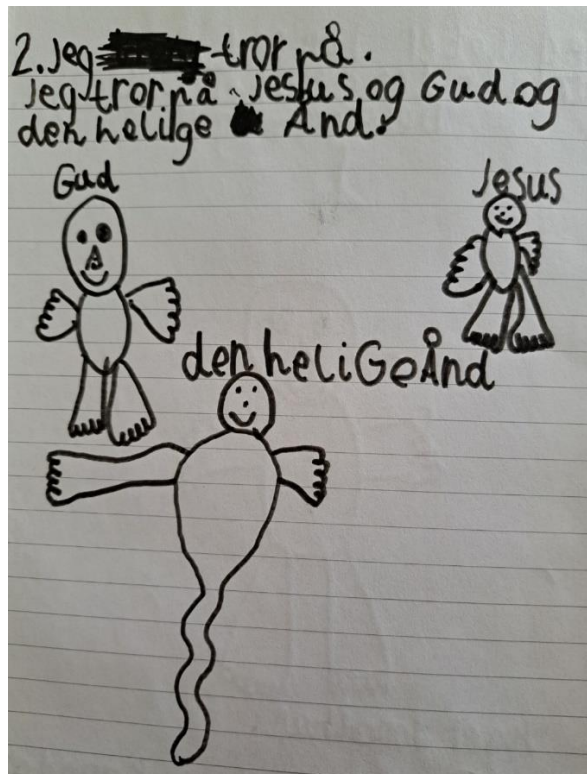 2. Jeg tror på.
Jeg tror på Jesus og Gud og
den helige Ånd.
Gud
Jesus
den heliGe Ånd